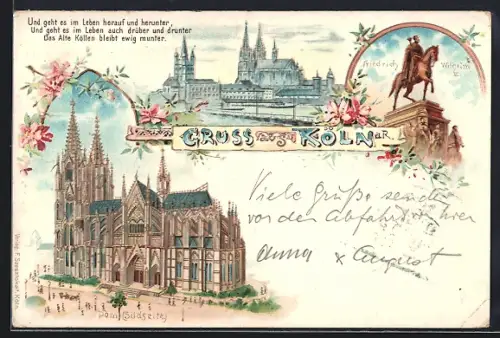 Und geht es im Leben herauf und herunter,
Und geht es im Leben auch drüber und drunter
Das Alte Köllen bleibt ewig munter.
Friedrich Wilhelm
GRUSS aus KÖLN a.R.
Viele Grüße senden
vor der Abfahrt von hier
Anna & August
Dom (Südseite)
Verlag
Köln.